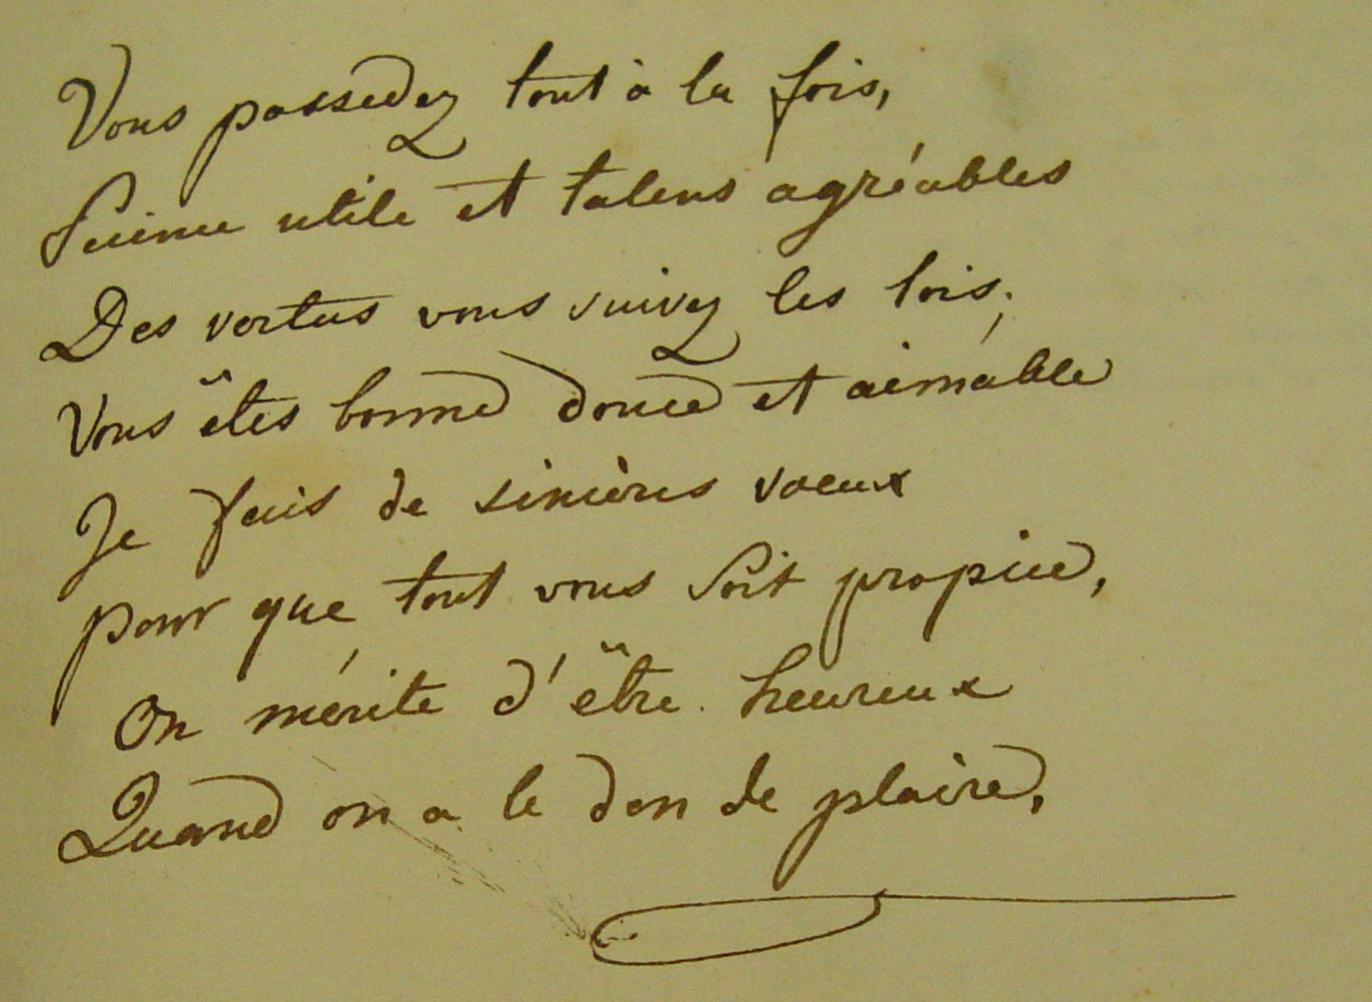 Vous possedez tout à la fois,
Science utile et talens agréables
Des vertus vous suivez les lois;
Vous êtes bonne douce et aimable
Je fais de sincères voeux
pour que tout vous soit propice,
On mérite d'être heureux
Quand on a le don de plaire,